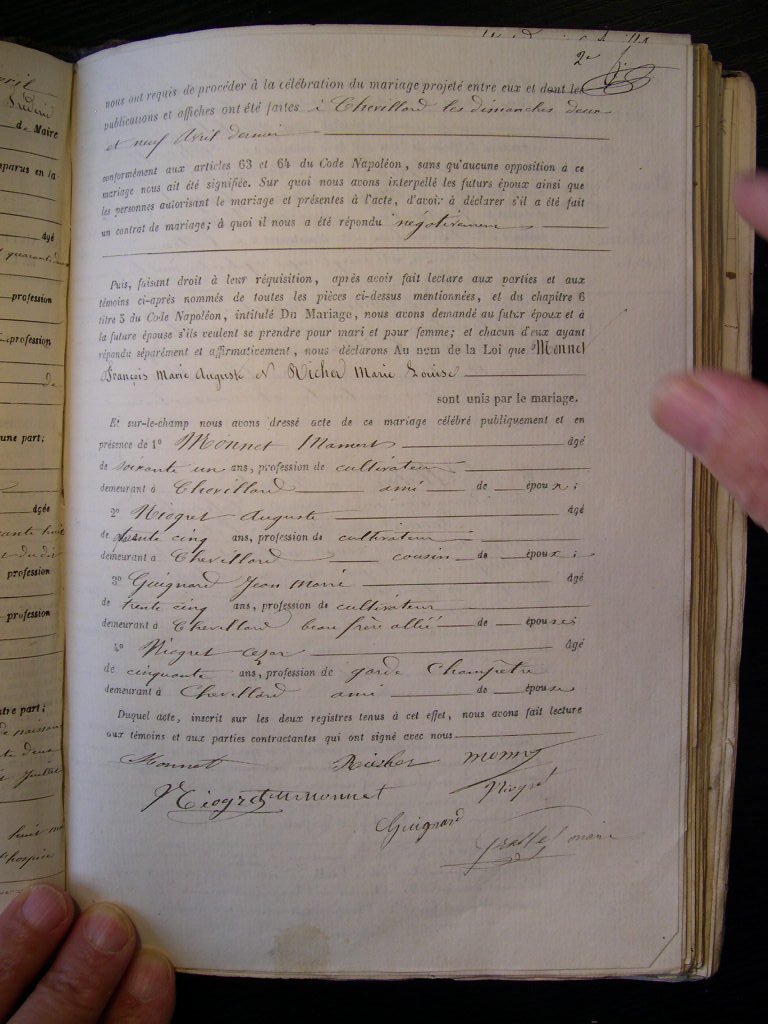 2e
nous ont requis de procéder à la célébration du mariage projeté entre eux et dont les
publications et affiches ont été faites à Chevillard les dimanches deux
et neuf Avril dernier
conformément aux articles 63 et 64 du Code Napoléon, sans qu'aucune opposition à ce
mariage nous ait été signifiée. Sur quoi nous avons interpellé les futurs époux ainsi que
les personnes autorisant le mariage et présentes à l'acte, d'avoir à déclarer s'il a été fait
un contrat de mariage; à quoi il nous a été répondu négativement
Puis, faisant droit à leur réquisition, après avoir fait lecture aux parties et aux
témoins ci-après nommés de toutes les pièces ci-dessus mentionnées, et du chapitre 6
titre 5 du Code Napoléon, intitulé Du Mariage, nous avons demandé au futur époux et à
la future épouse s'ils veulent se prendre pour mari et pour femme; et chacun d'eux ayant
répondu séparément et affirmativement, nous déclarons Au nom de la Loi que Monnet
François Marie Auguste et Richer Marie Louise
sont unis par le mariage.
Et sur-le-champ nous avons dressé acte de ce mariage célébré publiquement et en
présence de 1° Monnet Mamert âgé
de soixante un ans, profession de cultivateur
demeurant à Chevillard ami de époux;
2° Niogret Auguste âgé
de trente cinq ans, profession de cultivateur
demeurant à Chevillard cousin de époux;
3° Guignard Jean Marie âgé
de trente cinq ans, profession de cultivateur
demeurant à Chevillard beau frère allié de épouse;
4° Niogret Cézar âgé
de cinquante ans, profession de garde Champêtre
demeurant à Chevillard ami de épouse
Duquel acte, inscrit sur les deux registres tenus à cet effet, nous avons fait lecture
aux témoins et aux parties contractantes qui ont signé avec nous
Monnet Richer
Niogret Monnet Niogret
Guignard
maire